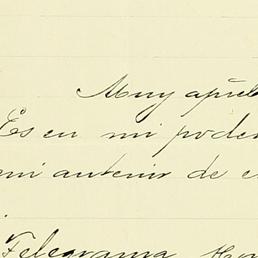 Muy apre
Es en mi poder
mi anterior de
Telegrama